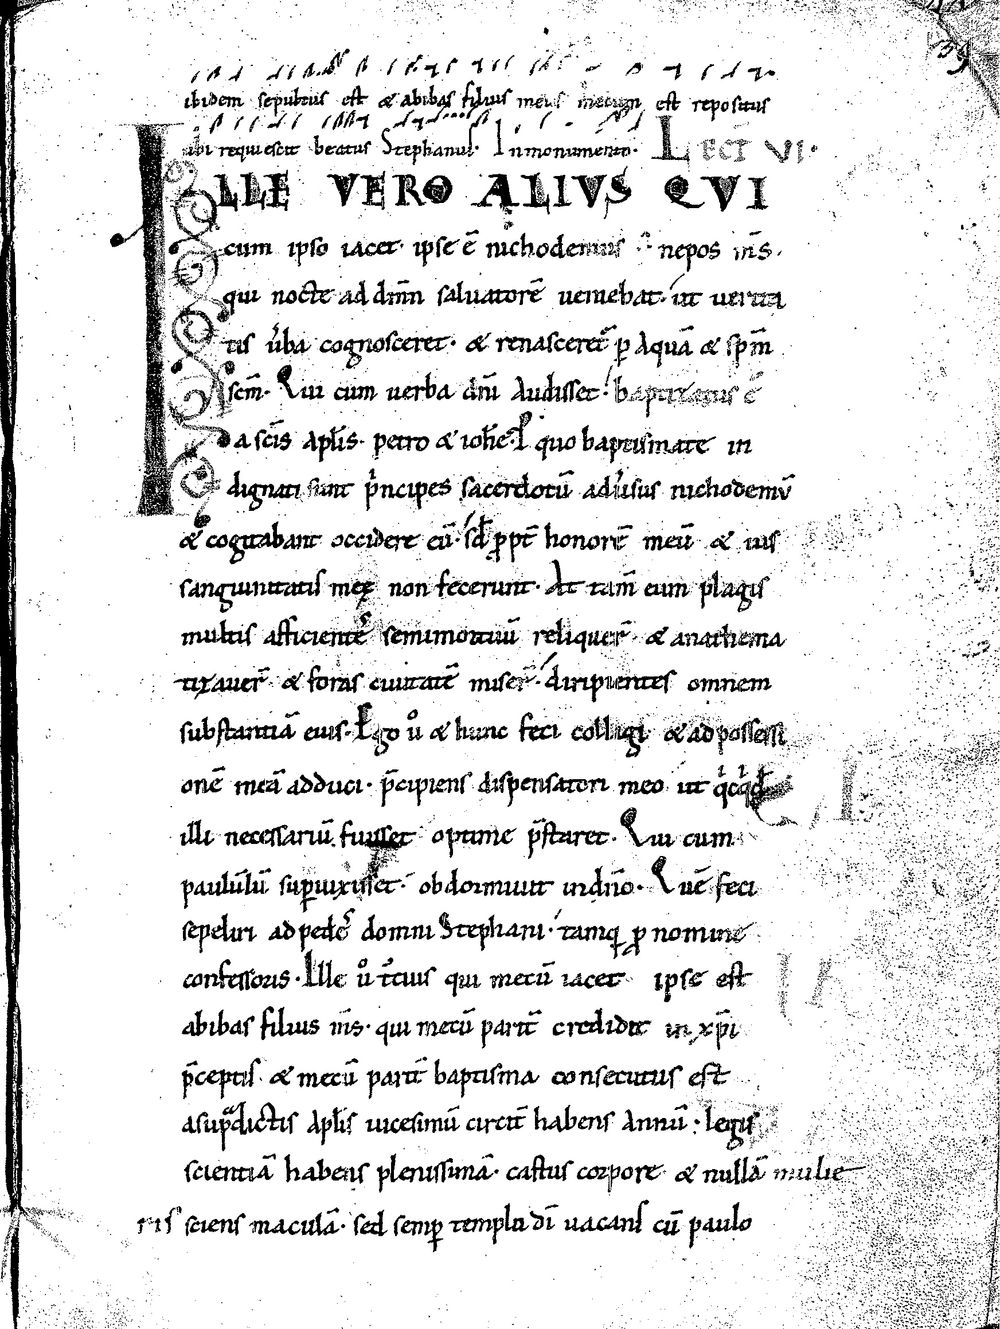 39
ibidem sepultus est & abibas filius meus mecum est repositus
ubi requiescit beatus Stephanus. In monumento. LECT VI.
ILLE VERO ALIVS QVI
cum ipso iacet. ipse ē nichodemus nepos m̄s.
qui nocte ad dm̄n saluatorē ueniebat. ut uerita
tis u̅ba cognosceret. & renasceret̄ p̱ aquā & sp̄m
sc̄m. Qui cum uerba dn̄i audisset. baptizatus ē
a sc̄is apl̄is. petro & ioh̄e. P quo baptismate in
dignati sunt p̍ncipes sacerdotū aduīsus nichodemū
& cogitabant occidere eū. sꝫ ꝓpt̄ honorē meū & ius
sanguinitatis meę non fecerunt. At tam̄ eum plagis
multis afficientes semimortuū reliquer̄ & anathema
tizauer̄ & foras ciuitatē miser̄. diripientes omnem
substantiā eius. Ego ů & hunc feci colligi & ad possessi
onē meā adduci. p̄cipiens dispensatori meo ut q̍cq̍d
illi necessariū fuisset optime p̄staret. Qui cum
paululū sup̱uixisset. obdormiuit in dn̄o. Quē feci
sepeliri ad pedes domni Stephani. tamq̱ ꝓ nomine
confessoris. Ille ů t̍cius qui mecū iacet ipse est
abibas filius m̄s. qui mecū parit̄ credidit in xp̄i
p̄ceptis & mecū parit̄ baptisma consecutus est
a sup̊dictis apl̄is uicesimū circit̄ habens annū. legis
scientiā habens plenissimā. castus corpore & nullā mulie
ris sciens maculā. sed semp̱ templo dī uacans cū paulo